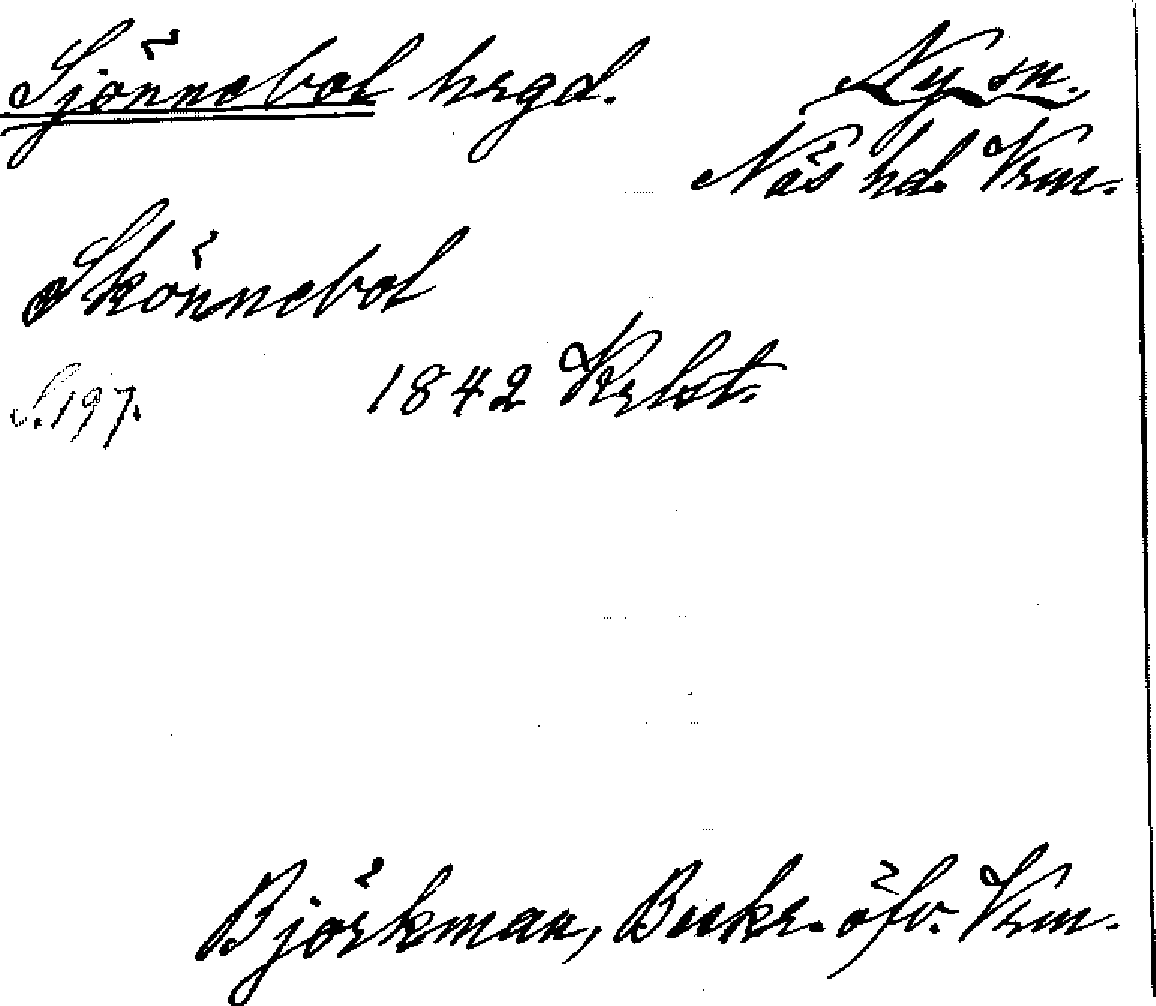 Sjönnebol hrgd. Ny sn.
Näs hd. Vrm.
Skönnebol
S. 197. 1842 Krlst.
Björkman, Beskr. öfv. Vrm.